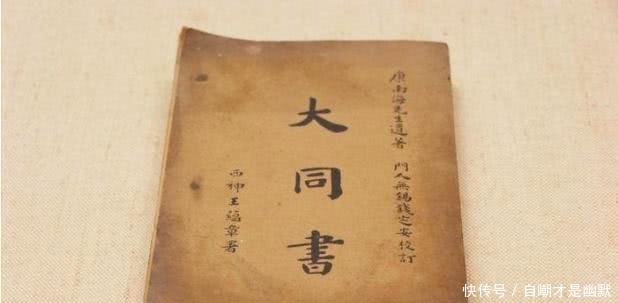 康南海先生遺著 門人無錫錢定安校訂
大同書
西神王蘊章署
快传号 / 自嘲才是幽默